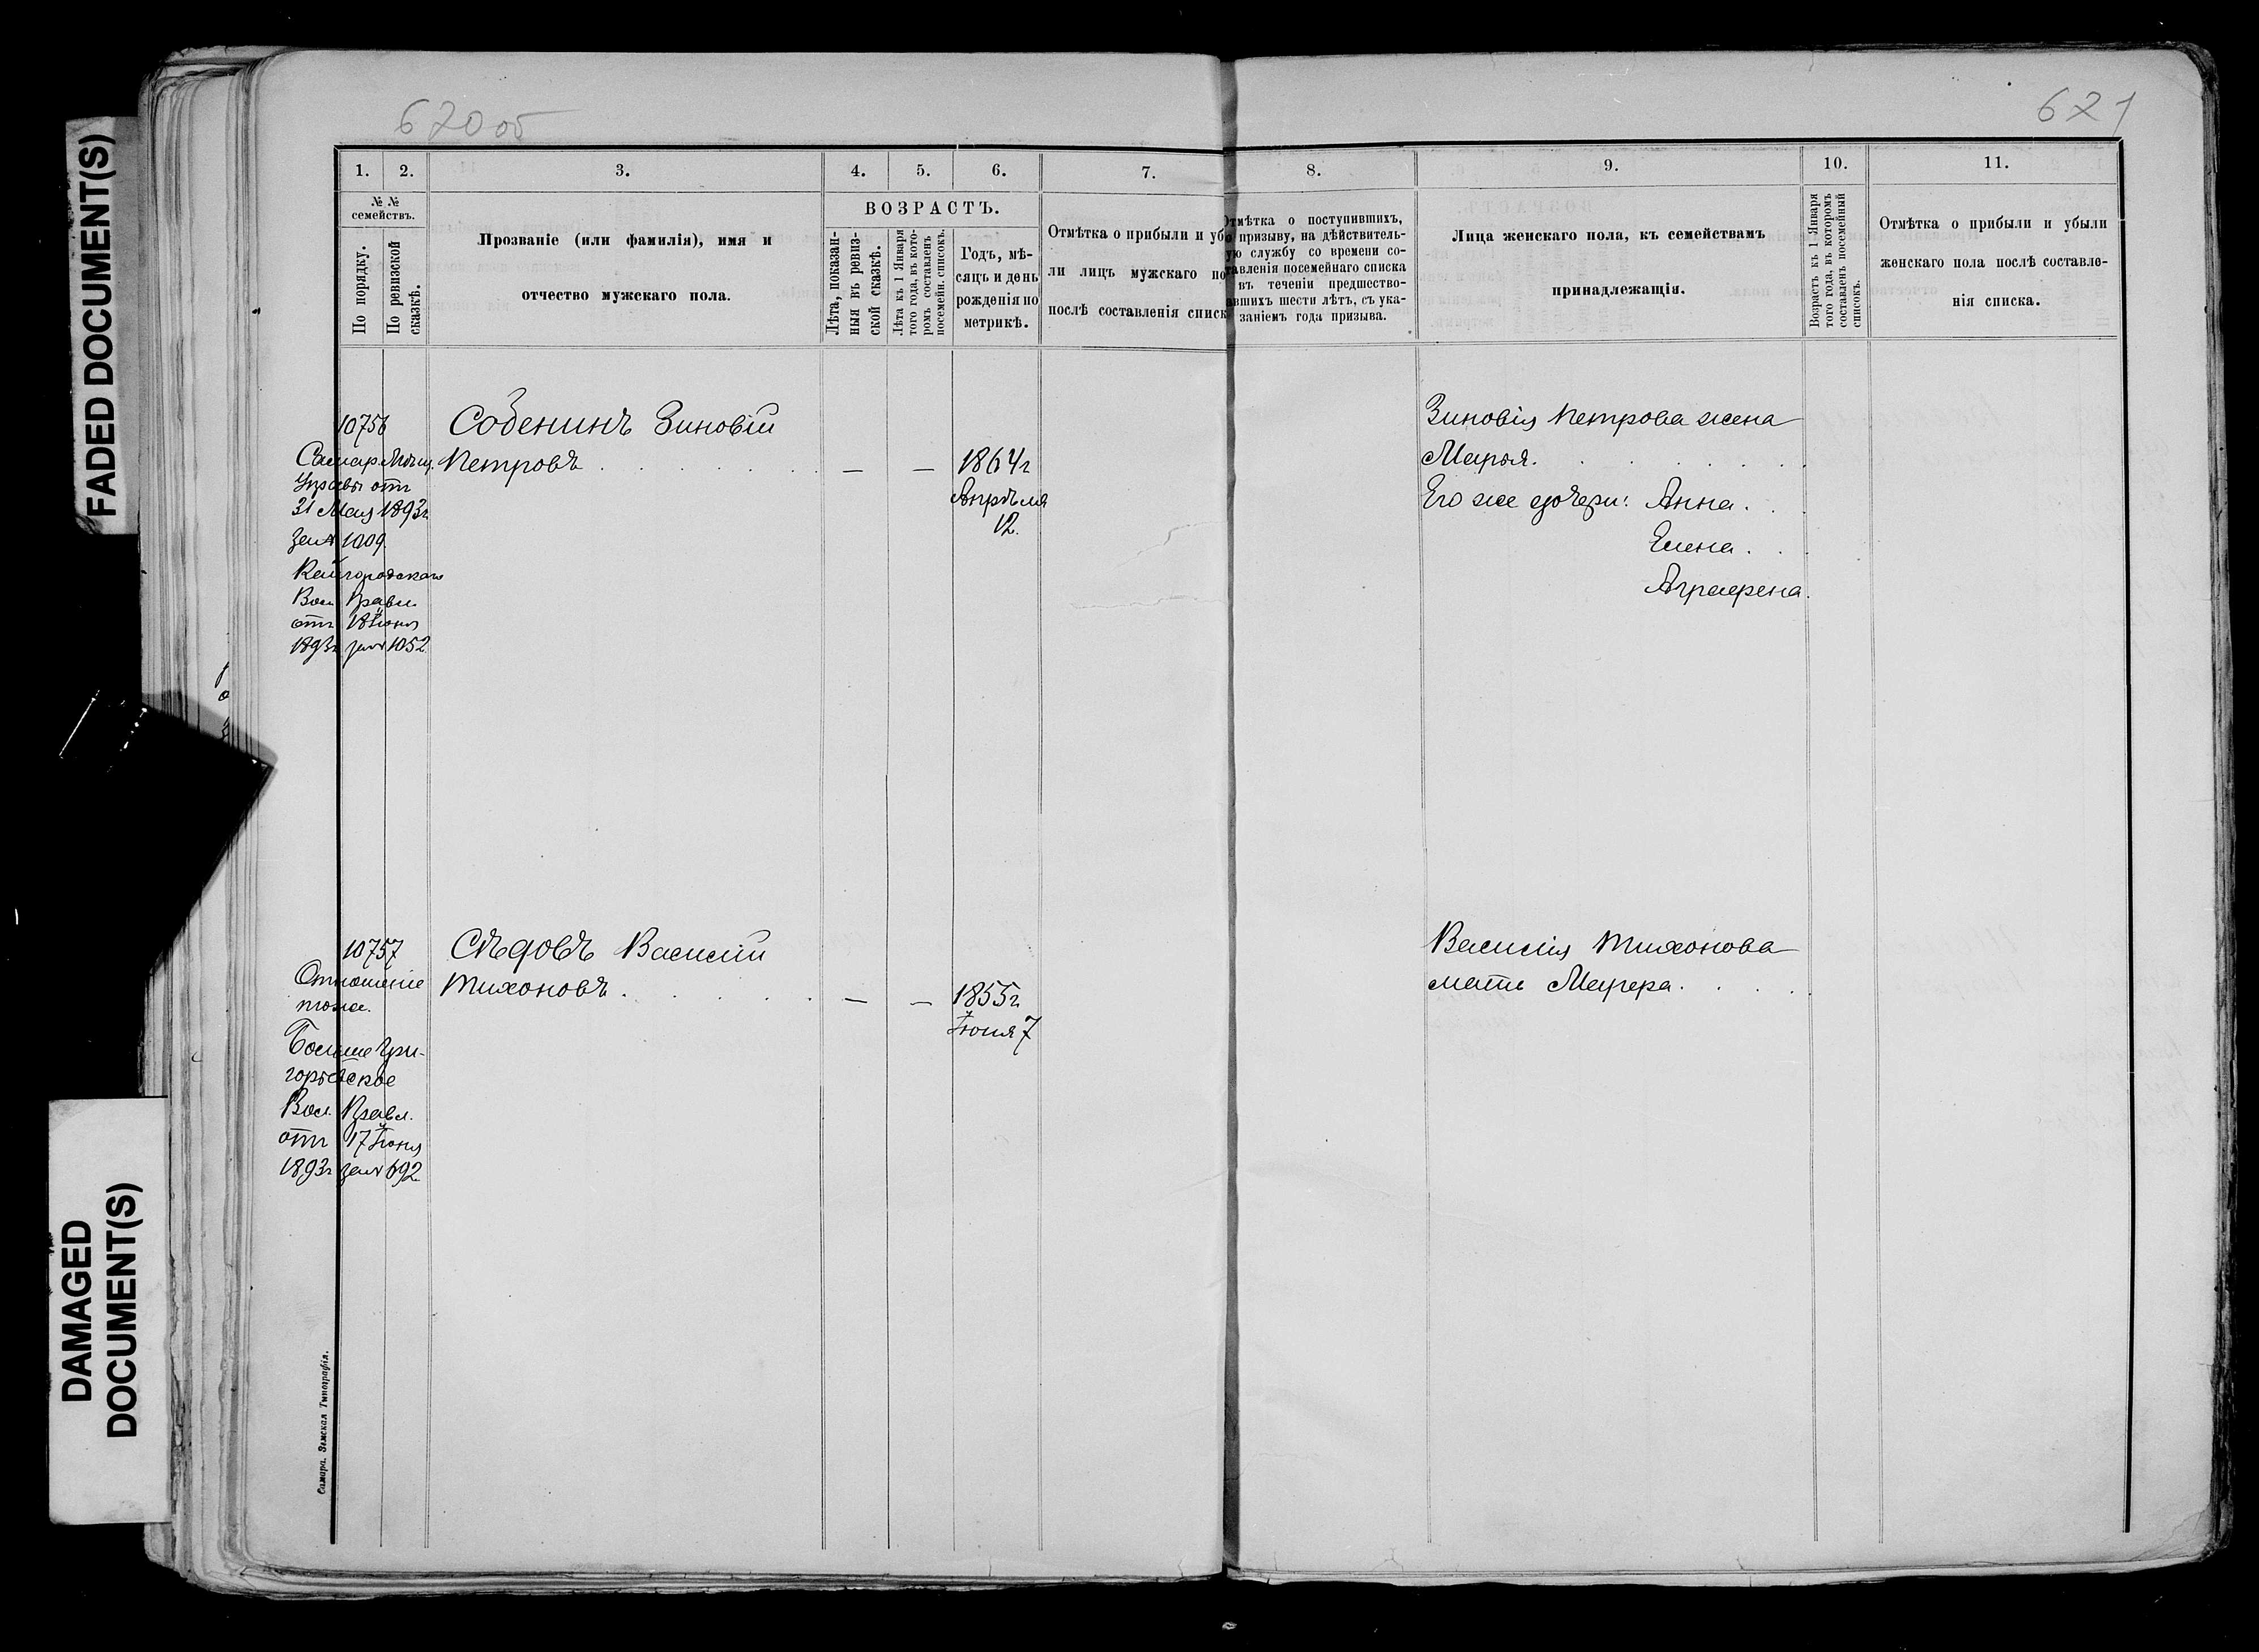 FADED DOCUMENT(S)
DAMAGED
DOCUMENT(S)
620 об
621
1.
2.
3.
4.
5.
6.
7.
8.
9.
10.
11.
№ №
семействъ.
По порядку.
По ревизской
сказкѣ.
Прозваніе (или фамилія), имя и
отчество мужскаго пола.
ВОЗРАСТЪ.
Лѣта, показан-
ныя въ ревиз-
ской сказкѣ.
Лѣта къ 1 Января
того года, въ кото-
ромъ составленъ
посемейн. списокъ.
Годъ, мѣ-
сяцъ и день
рожденія по
метрикѣ.
Отмѣтка о прибыли и убы
ли лицъ мужскаго по
послѣ составленія списк
Отмѣтка о поступившихъ,
по призыву, на дѣйствитель-
ую службу со времени со-
тавленія посемейнаго списка
въ теченіи предшество-
авшихъ шести лѣтъ, съ ука-
заніемъ года призыва.
Лица женскаго пола, къ семействамъ
принадлежащія.
Возрастъ къ 1 Января
того года, въ которомъ
составленъ посемейный
списокъ.
Отмѣтка о прибыли и убыли
женскаго пола послѣ составле-
нія списка.
10756
Самар. Мѣщ.
Управы отъ
31 Мая 1893г.
за № 1009.
Кайгородскаго
Вол. Правл.
отъ 18 Іюня
1893г. за № 1052.
Собенинъ Зиновій
Петровъ . . . . . . — —
1864г
Апрѣля
12.
Зиновія Петрова жена
Марья. . . . . . .
Его же дочери: Анна. . .
Елена. . .
Аграфена.
10757
Отношеніе
тоже.
Больше Гри-
горьевское
Вол. Правл.
отъ 17 Іюня
1893г за № 692.
Сѣдовъ Василій
Тихоновъ . . . . . — —
1855г
Іюня 7
Василія Тихонова
мать Марѳа. . . . .
Самара. Земская Типографія.